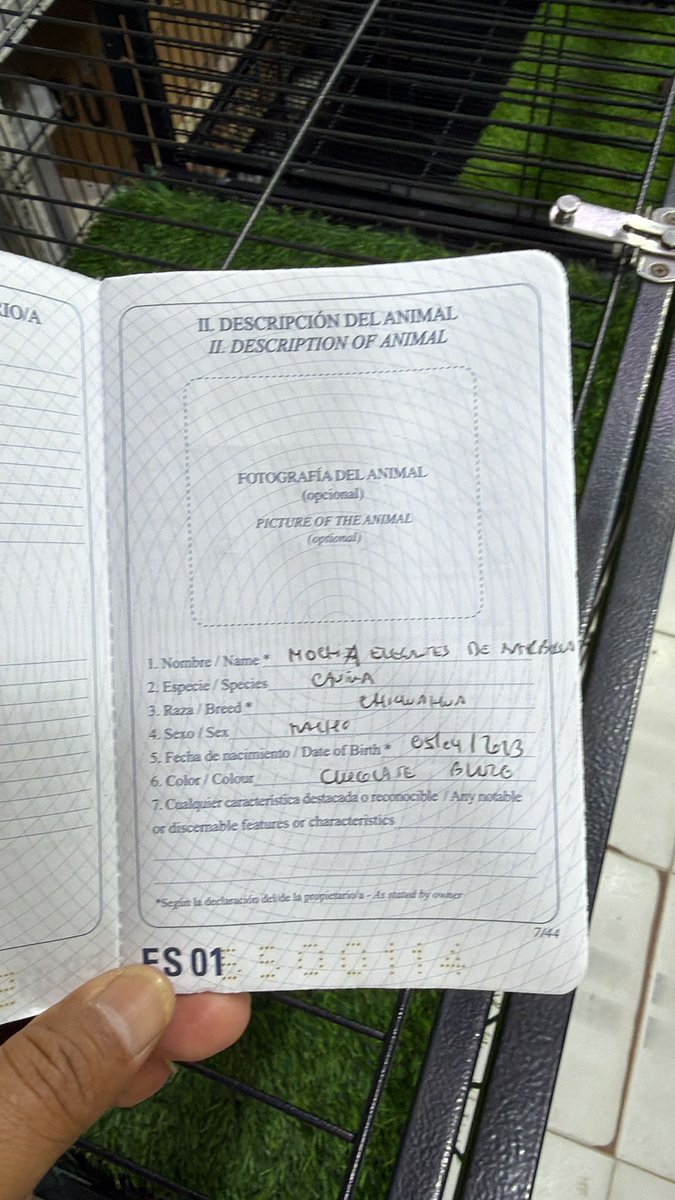 RIO/A
II. DESCRIPCIÓN DEL ANIMAL
II. DESCRIPTION OF ANIMAL
FOTOGRAFÍA DEL ANIMAL
(opcional)
PICTURE OF THE ANIMAL
(optional)
1. Nombre / Name * MOCHA DE
2. Especie / Species CANINA
3. Raza / Breed * CHIHUAHUA
4. Sexo / Sex MACHO
5. Fecha de nacimiento / Date of Birth * 05/04/2023
6. Color / Colour CHOCOLATE
7. Cualquier característica destacada o reconocible / Any notable
or discernable features or characteristics
*Según la declaración del/de la propietario/a - As stated by owner
7/44
ES 01